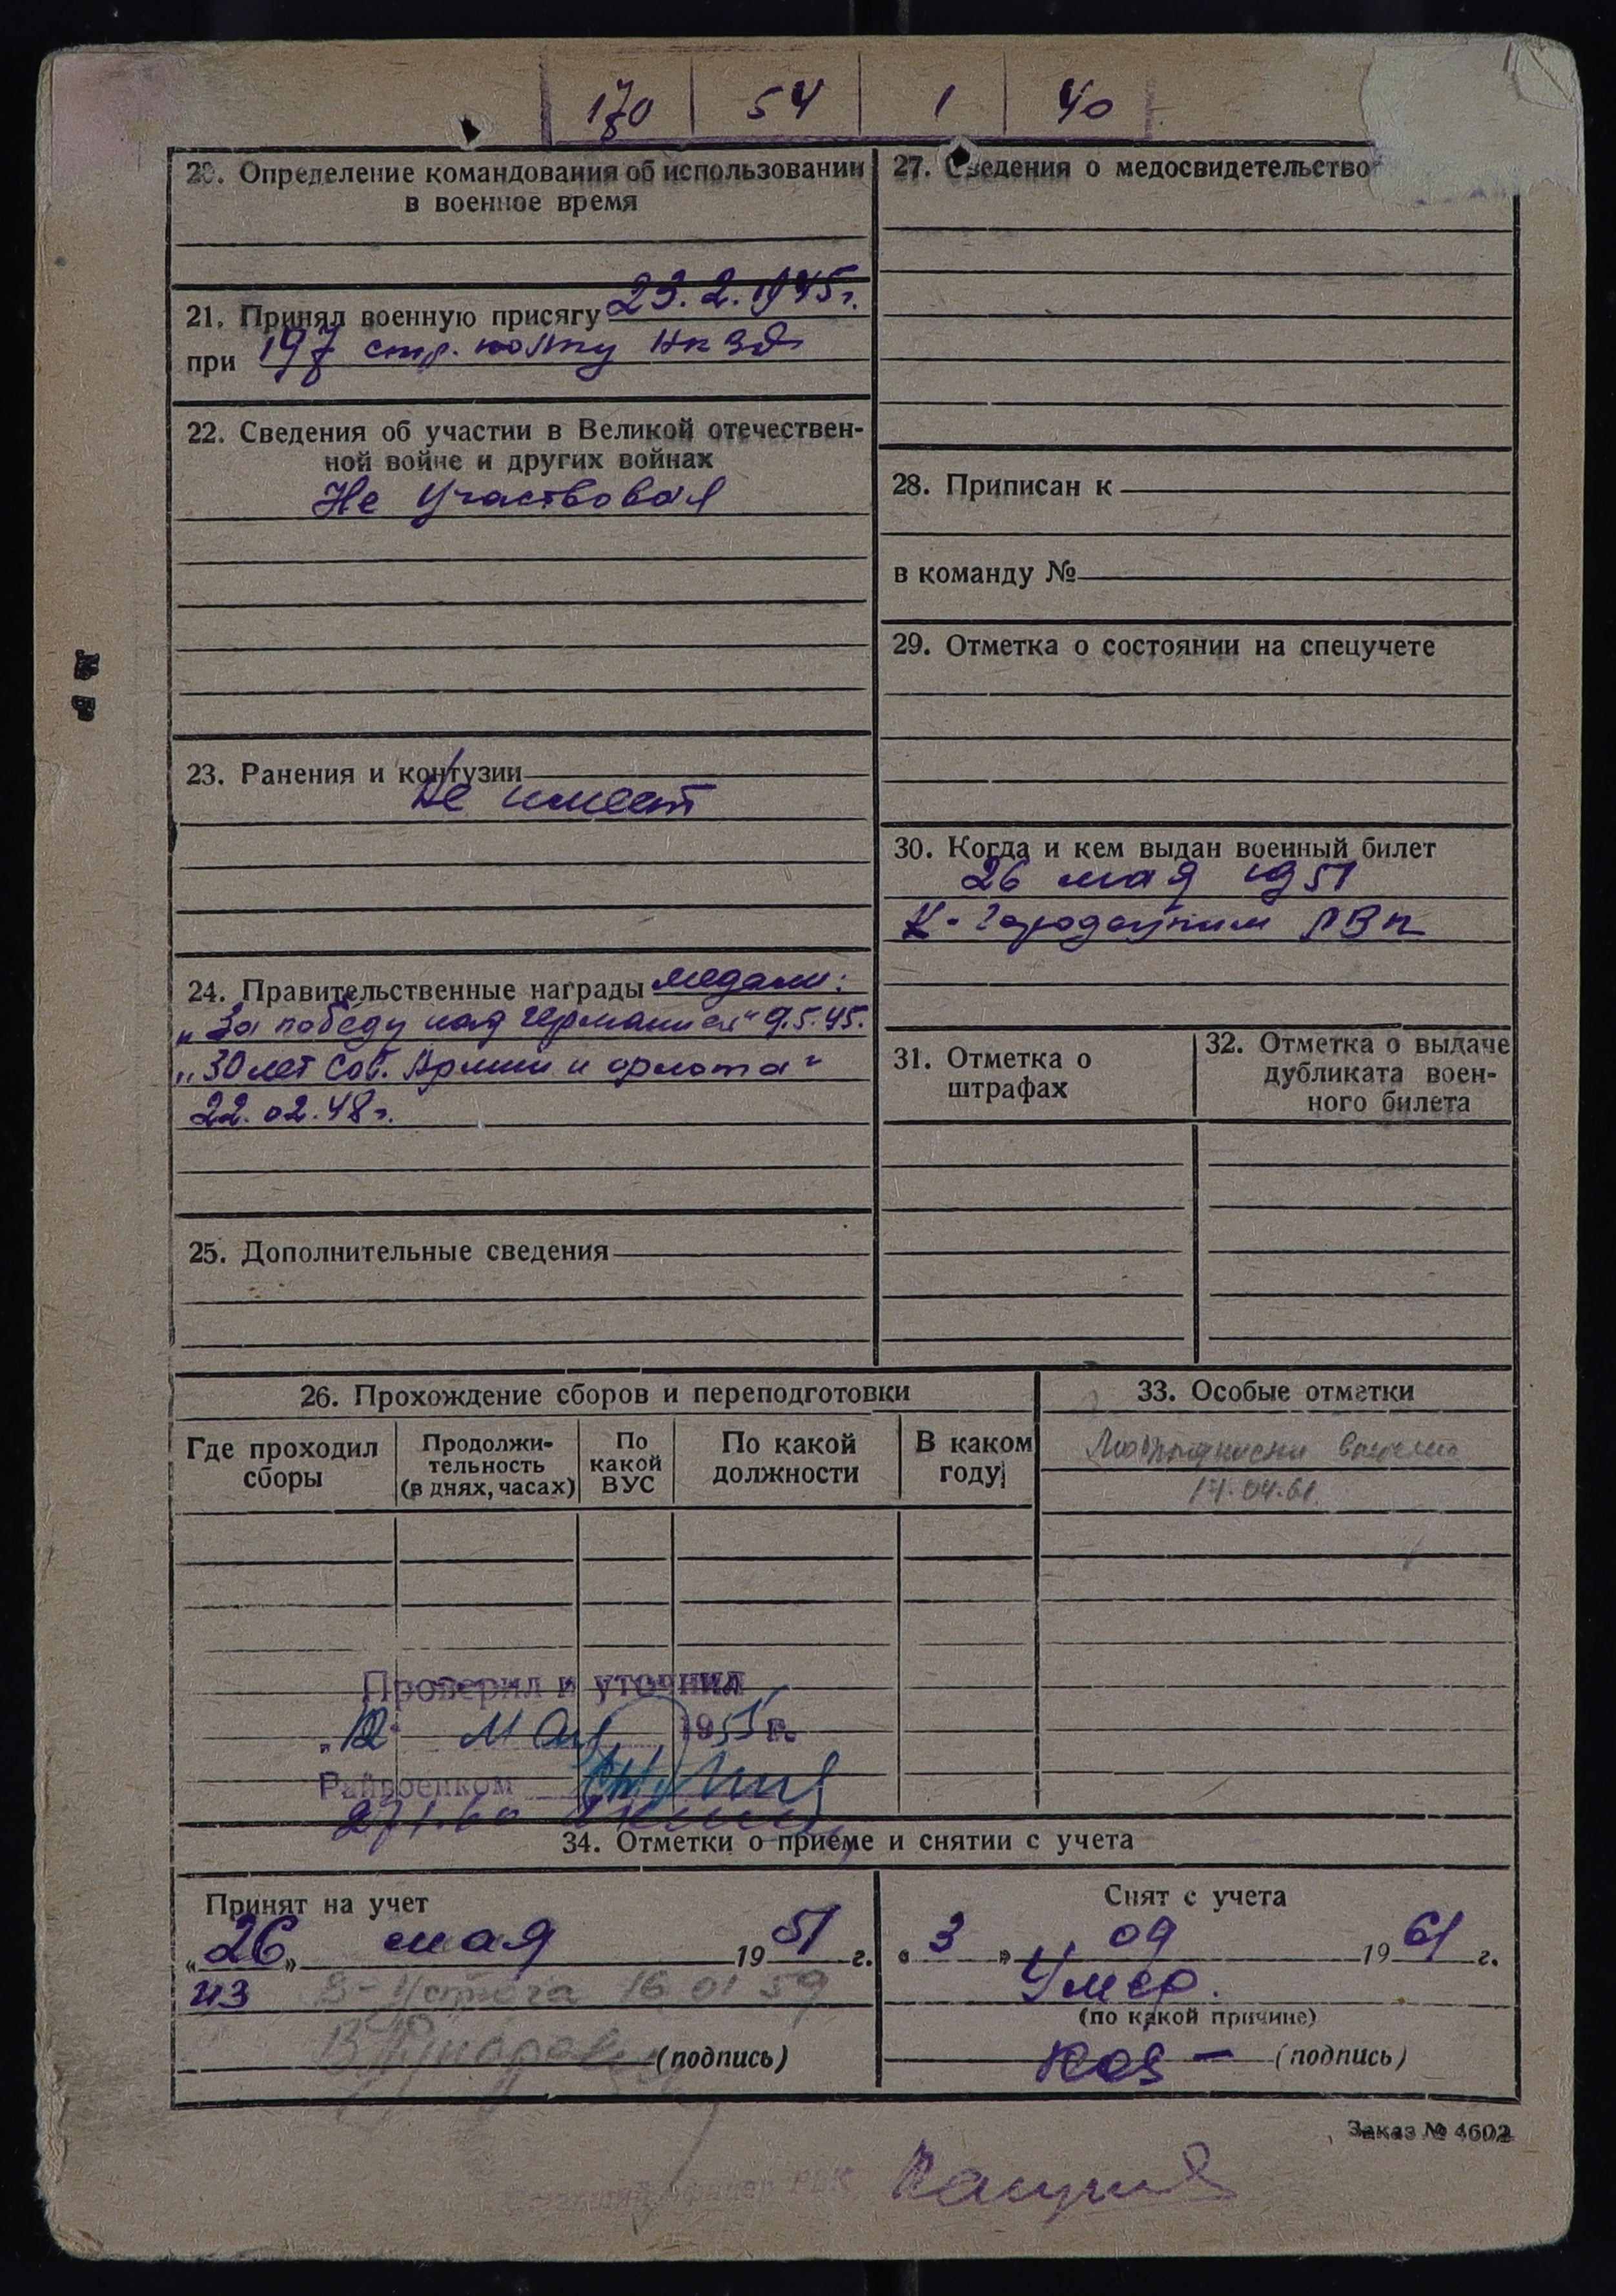 170 54 1 40
20. Определение командования об использовании
в военное время
21. Принял военную присягу 23.2.1945г.
при 197 стр. полку НКВД
22. Сведения об участии в Великой отечествен-
ной войне и других войнах
Не участвовал
23. Ранения и контузии
Не имеет
24. Правительственные награды медали:
„За победу над Германией" 9.5.45.
„30 лет Сов. Армии и флота"
22.02.48г.
25. Дополнительные сведения
27. Сведения о медосвидетельство
28. Приписан к
в команду №
29. Отметка о состоянии на спецучете
30. Когда и кем выдан военный билет
26 мая 1951
К-Городецким РВК
31. Отметка о
штрафах
32. Отметка о выдаче
дубликата воен-
ного билета
26. Прохождение сборов и переподготовки
Где проходил
сборы
Продолжи-
тельность
(в днях, часах)
По
какой
ВУС
По какой
должности
В каком
году
33. Особые отметки
17.04.61.
Проверил и уточнил
„12" мая 1955 г.
Райвоенком
34. Отметки о приеме и снятии с учета
Принят на учет
„26" мая 1951 г.
из В-Устюга 16 01 59
(подпись)
Снят с учета
«3» 09 1961 г.
Умер.
(по какой причине)
(подпись)
Заказ № 4602
офицер РВК